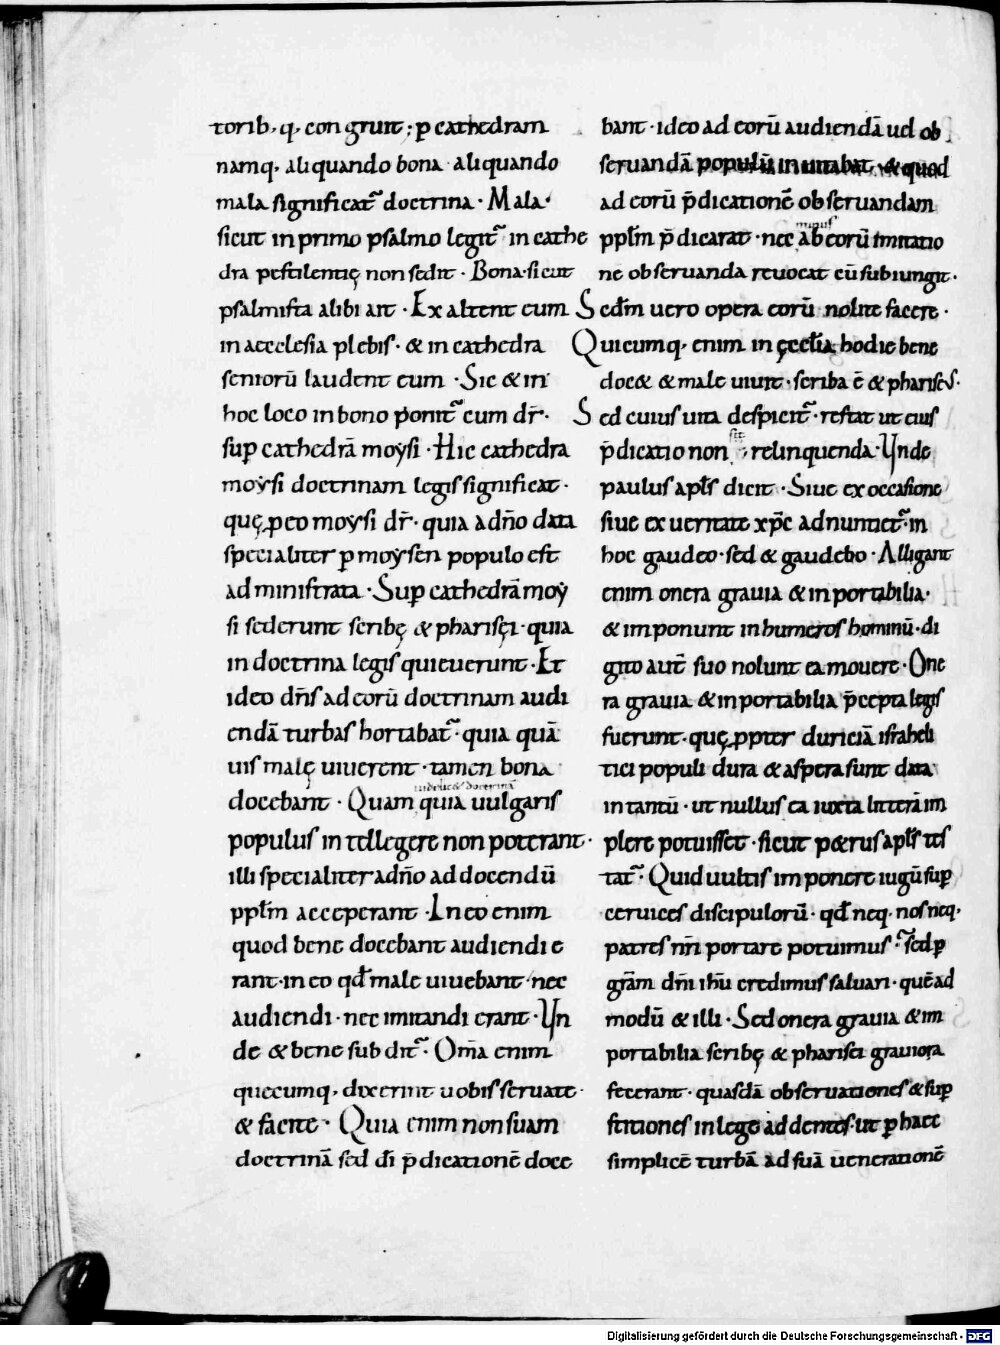 torib; q; congruit; p cathedram
namq; aliquando bona · aliquando
mala significat᷑ doctrina · Mala
sicut in primo psalmo legit᷑ in cathe
dra pestilentię non sedit · Bona · sicut
psalmista alibi ait · Exaltent eum
in aecclesia plebis · & in cathedra
seniorū laudent eum · Sic & in
hoc loco in bono ponit᷑ cum dr̄ ·
sup cathedrā moysi · Hic cathedra
moysi doctrinam legis significat ·
quę ꝓeo moysi dr̄ · quia a dño data
specialiter ꝑ moysen populo est
administrata · Sup cathedrā moy
si sederunt scribę & pharisęi · quia
in doctrina legis quieuerunt · Et
ideo dñs ad eorū doctrinam audi
endā turbas hortabat᷑ · quia quā
uis malę uiuerent · tamen bona
docebant · Quam quia uulgaris
populus intellegere non poterant ·
illi specialiter a dño ad docendū
pplm̄ acceperant · In eo enim
quod bene docebant audiendi e
rant · in eo qđ male uiuebant · nec
audiendi · nec imitandi erant · Un
de & bene subdit᷑ · Om̄a enim
quecumq; dixerint uobis seruate ·
& facite · Quia enim non suam
doctrinā sed dī p̄dicationē doce
bant · ideo ad eorū audiendā uel ob
seruandā populū inuitabat · & quod
ad eorū p̄dicationē obseruandam
pplm̄ p̄dicarat · nec minus ab eorū imitatio
ne obseruanda reuocat cū subiungit ·
Secdm̄ uero opera eorū nolite facere ·
Quicumq; enim in ęcclia hodie bene
doc& & male uiuit · scriba ē & phariseus ·
Sed cuius uita despicit᷑ · restat ut eius
p̄dicatio non sit relinquenda · Unde
paulus apls̄ dicit · Siue ex occasione
siue ex ueritate xp̄c adnuntiet᷑ · in
hoc gaudeo · sed & gaudebo · Alligant
enim onera grauia & inportabilia ·
& imponunt in humeros hominū · di
gito aut̄ suo nolunt ea mouere · One
ra grauia & inportabilia p̄cepta legis
fuerunt · quę ꝓpter duriciā israheli
tici populi dura & aspera sunt data
in tantū · ut nullus ea iuxta litterā im
plere potuisset · sicut p&rus apls̄ tes
tat᷑ · Quid uultis imponere iugū sup
ceruices discipulorū · qđ neq; nos neq;
patres nr̄i portare potuimus · sed ꝑ
gr̄am dnī ihū credimus saluari · quēad
modū & illi · Sed onera grauia & im
portabilia scribę & pharisei grauiora
fecerant · quasdā obseruationes & sup
stitiones in lege addentes · ut ꝑ haec
simplicē turbā ad suā uenerationē
Digitalisierung gefördert durch die Deutsche Forschungsgemeinschaft - DFG